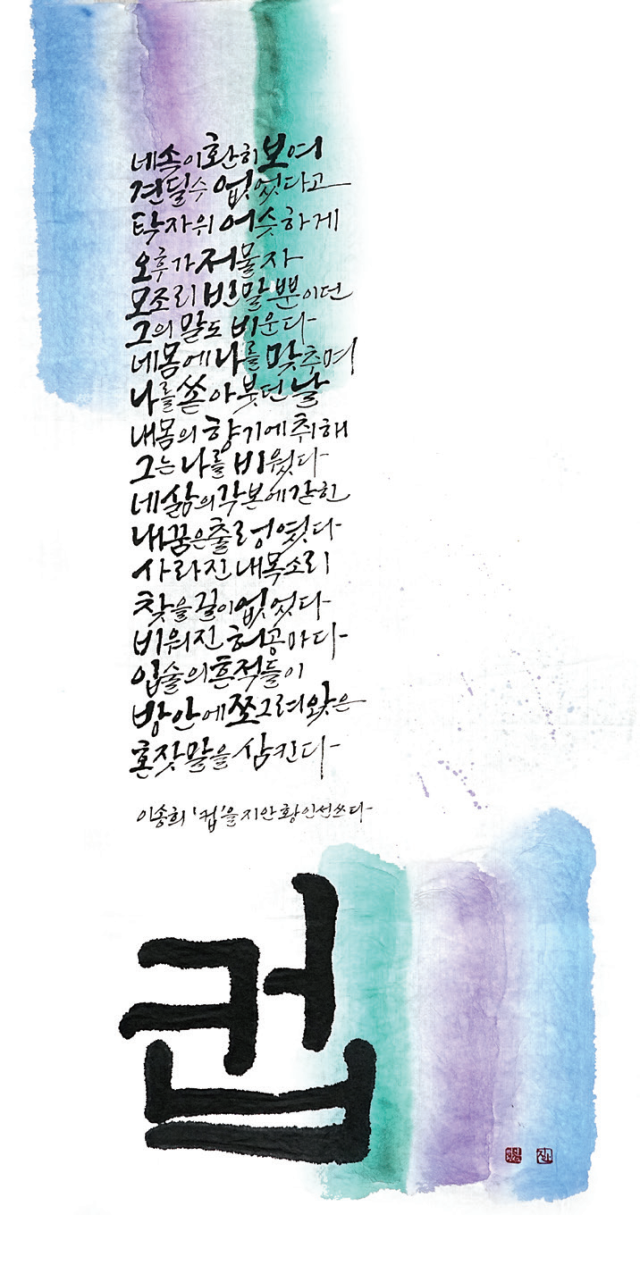 네 속이 환히 보여
견딜 수 없었다고
탁자 위 어슷하게
오후가 저물자
모조리 빈말뿐이던
그의 말도 비운다
네 몸에 나를 맞추며
나를 쏟아붓던 날
내 몸의 향기에 취해
그는 나를 비웠다
네 삶의 각본에 갇힌
내 꿈은 출렁였다
사라진 내 목소리
찾을 길이 없었다
비워진 허공마다
입술의 흔적들이
방안에 쪼그려 앉은
혼잣말을 삼킨다
이송희 '컵'을 지안 황인선 쓰다
컵